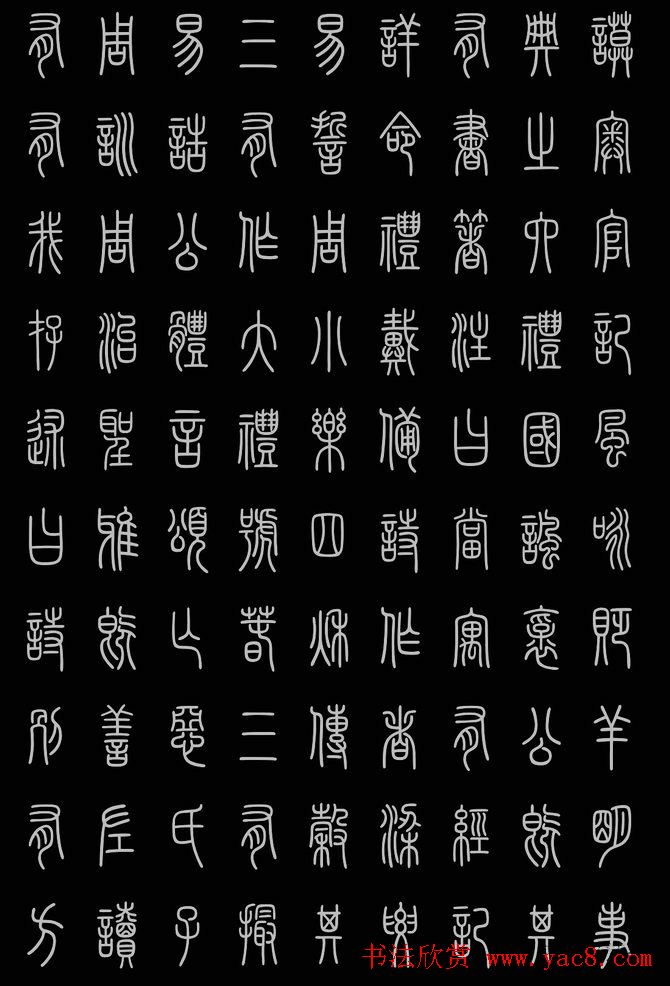 有周易三易詳有典謨
有訓誥有誓命書之奧
我周公作周禮著六官
存治體大小戴注禮記
述聖言禮樂備曰國風
曰雅頌號四詩當諷咏
詩既亡春秋作寓褒貶
別善惡三傳者有公羊
有左氏有穀梁經既明
方讀子撮其要記其事
书法欣赏 www.yac8.com